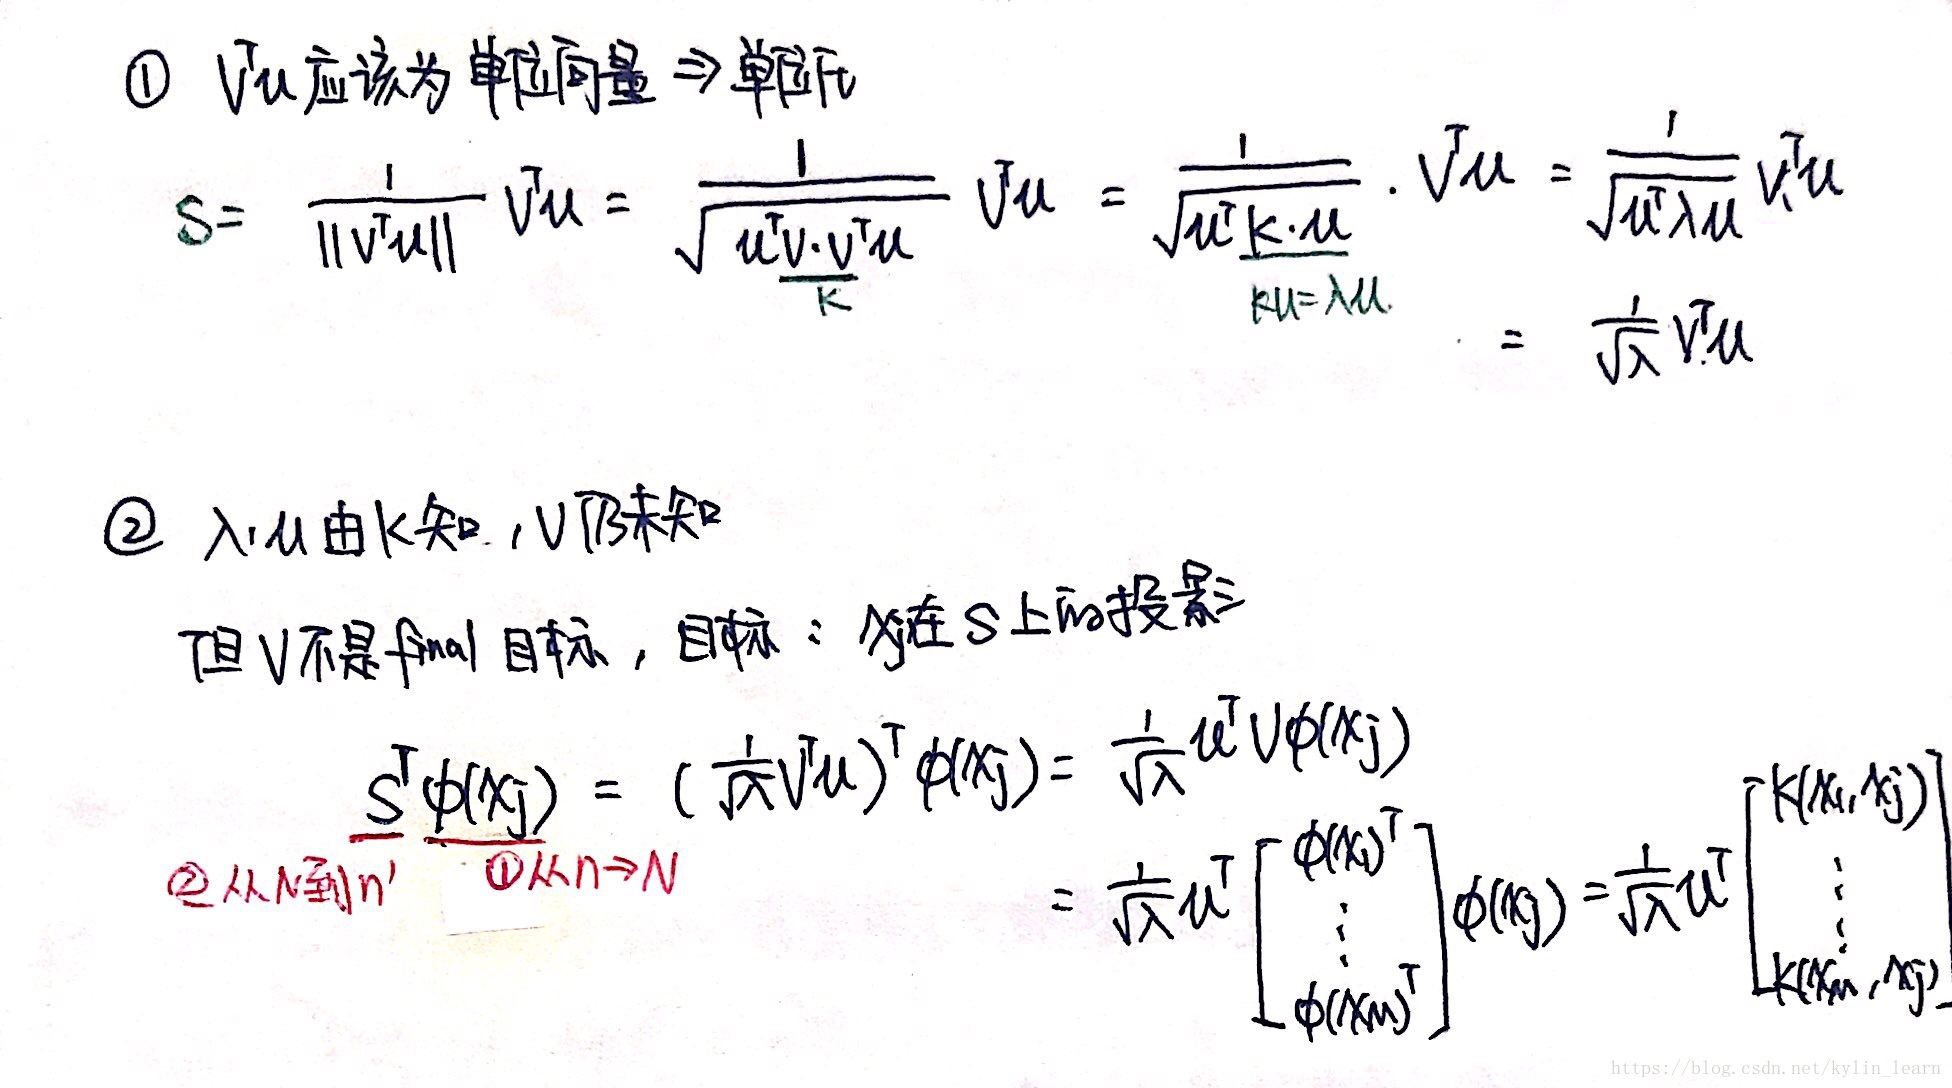 ① VᵀU应该为单位向量 ⇒ 单位化
S = 1/||VᵀU|| VᵀU = 1/√(UᵀV·VᵀU) VᵀU = 1/√(UᵀK·U) · VᵀU = 1/√(UᵀλU) VᵀU
K
KU=λU.
= 1/√λ VᵀU
② λ,U由K知,V仍未知
但V不是final目标,目标:xj在S上的投影
Sᵀφ(xj) = (1/√λ VᵀU)ᵀφ(xj) = 1/√λ UᵀVφ(xj)
②从N到n' ①从n→N
= 1/√λ Uᵀ [φ(x₁)ᵀ ⋮ φ(xm)ᵀ] φ(xj) = 1/√λ Uᵀ [K(x₁,xj) ⋮ K(xm,xj)]
https://blog.csdn.net/kylin_learn